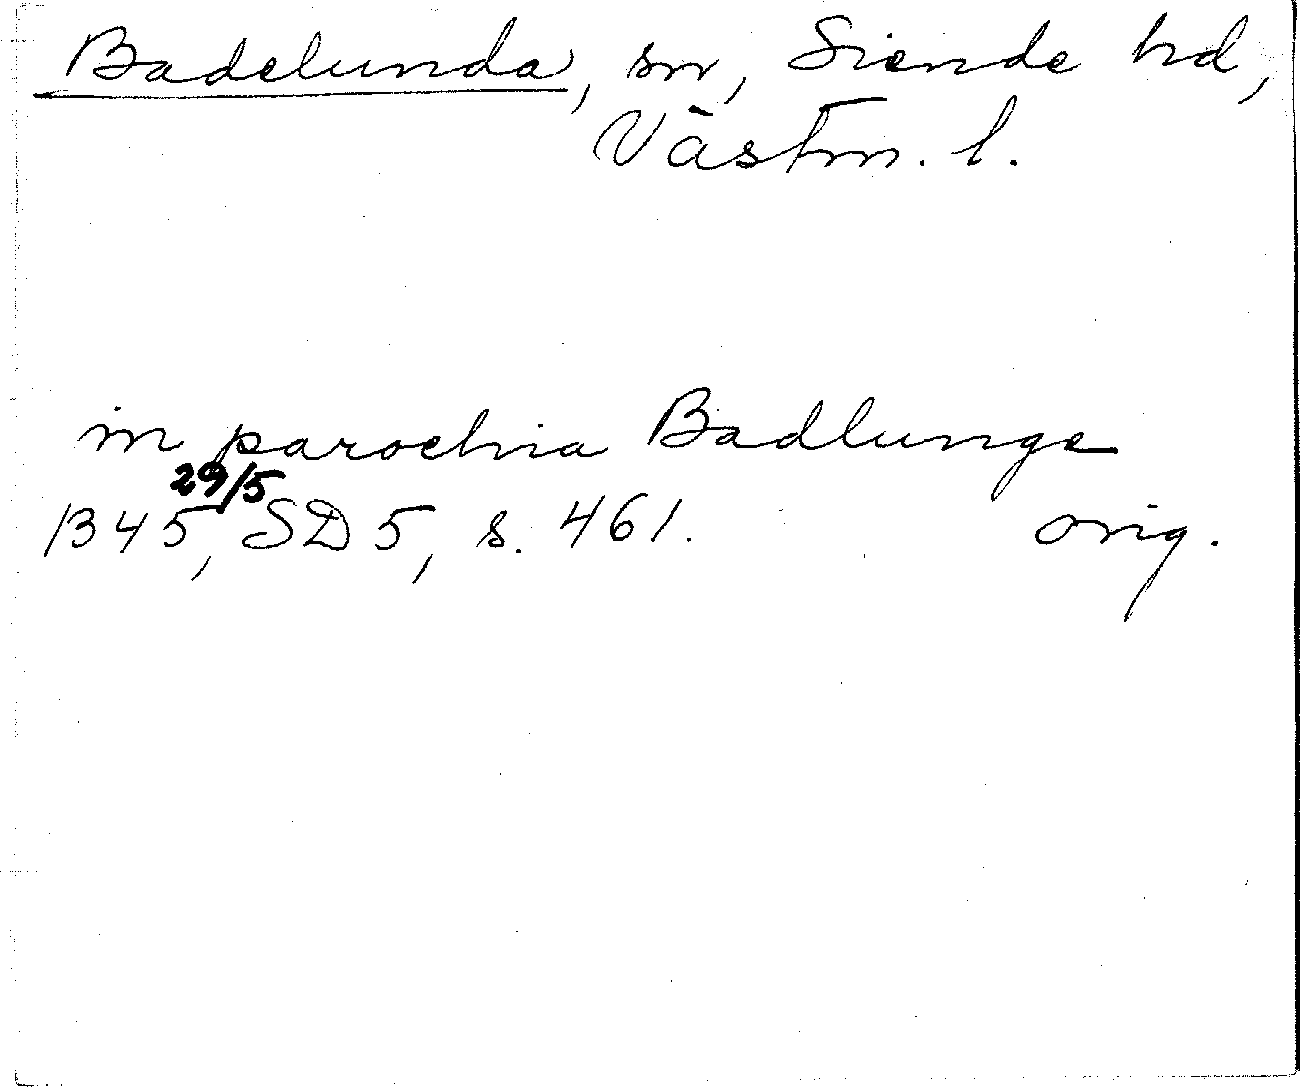 Badelunda, sn, Siende hd,
Västm. l.
in parochia Badlunge
29/5
1345, SD 5, s. 461. orig.